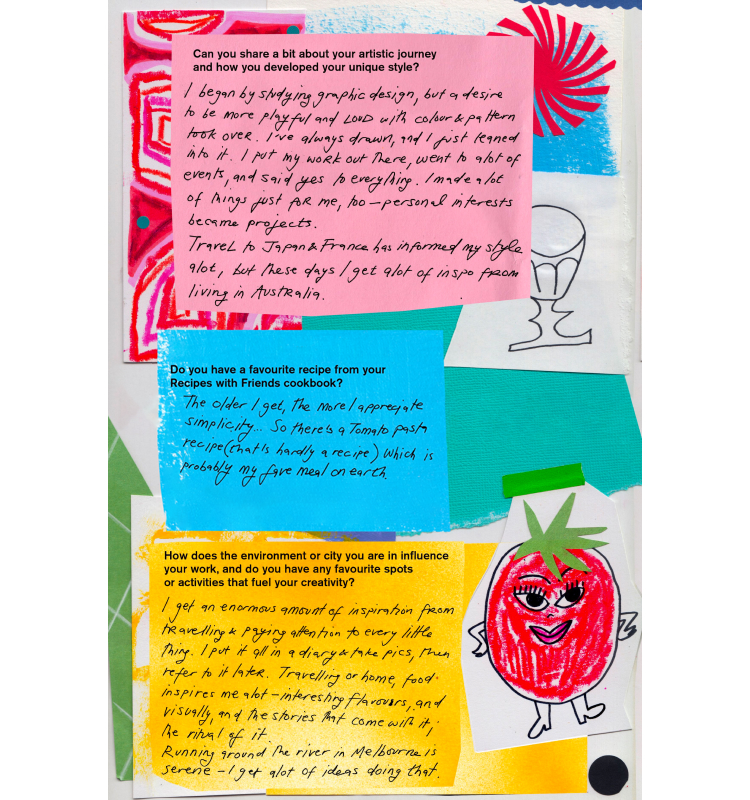 Can you share a bit about your artistic journey
and how you developed your unique style?
I began by studying graphic design, but a desire
to be more playful and LOUD with colour & pattern
took over. I've always drawn, and I just leaned
into it. I put my work out there, went to alot of
events, and said yes to everything. I made alot
of things just for me, too – personal interests
became projects.
Travel to Japan & France has informed my style
alot, but these days I get alot of inspo from
living in Australia.
Do you have a favourite recipe from your
Recipes with Friends cookbook?
The older I get, the more I appreciate
simplicity... So there's a Tomato pasta
recipe (that is hardly a recipe) which is
probably my fave meal on earth.
How does the environment or city you are in influence
your work, and do you have any favourite spots
or activities that fuel your creativity?
I get an enormous amount of inspiration from
travelling & paying attention to every little
thing. I put it all in a diary & take pics, then
refer to it later. Travelling or home, food
inspires me alot – interesting flavours, and
visually, and the stories that come with it;
the ritual of it.
Running around the river in Melbourne is
serene – I get alot of ideas doing that.